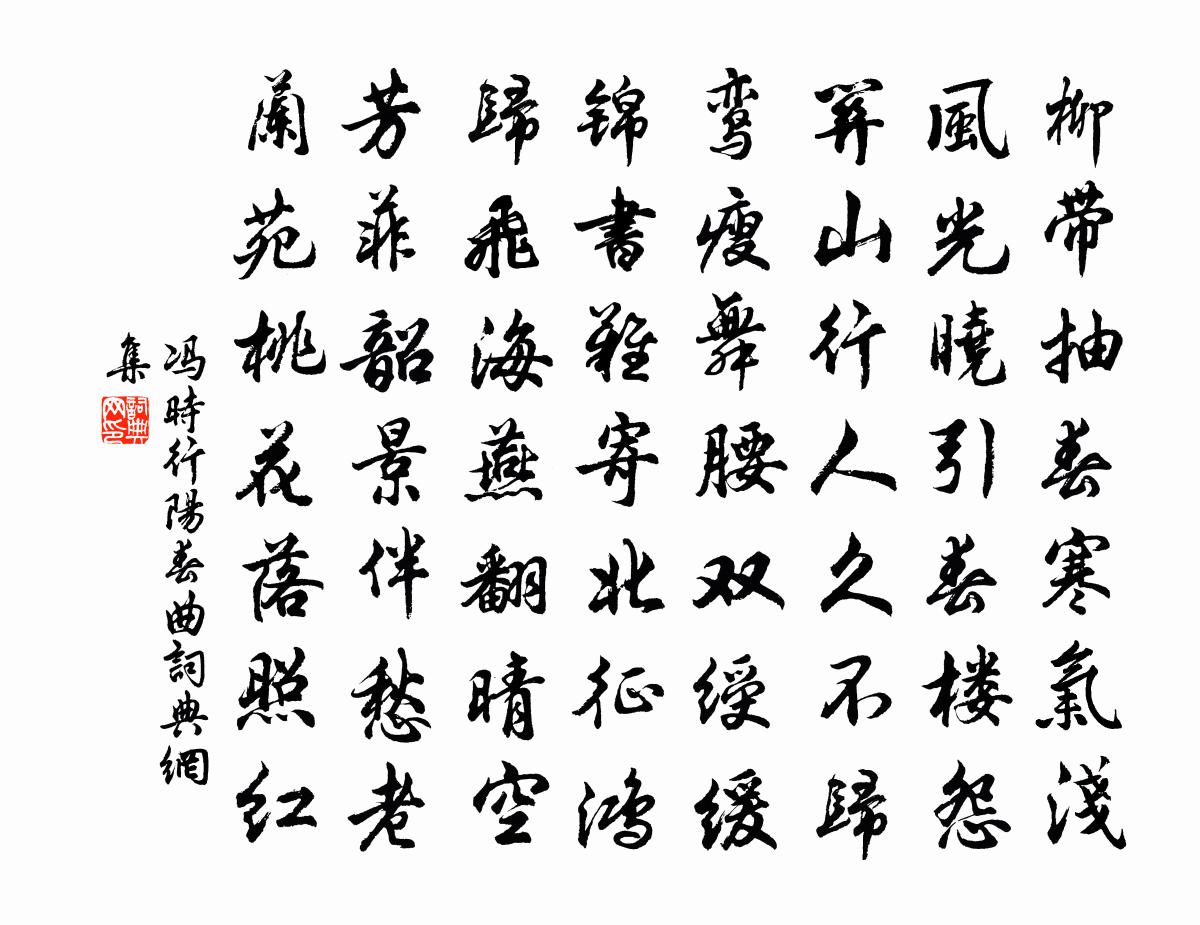 柳带抽春寒氣淺
風光曉引春楼怨
關山行人久不歸
鸾瘦舞腰双绶缓
锦書难寄北征鸿
歸飛海燕翻晴空
芳菲韶景伴愁老
蘭苑桃花落照红
冯時行陽春曲詞典網
集
詞典网印